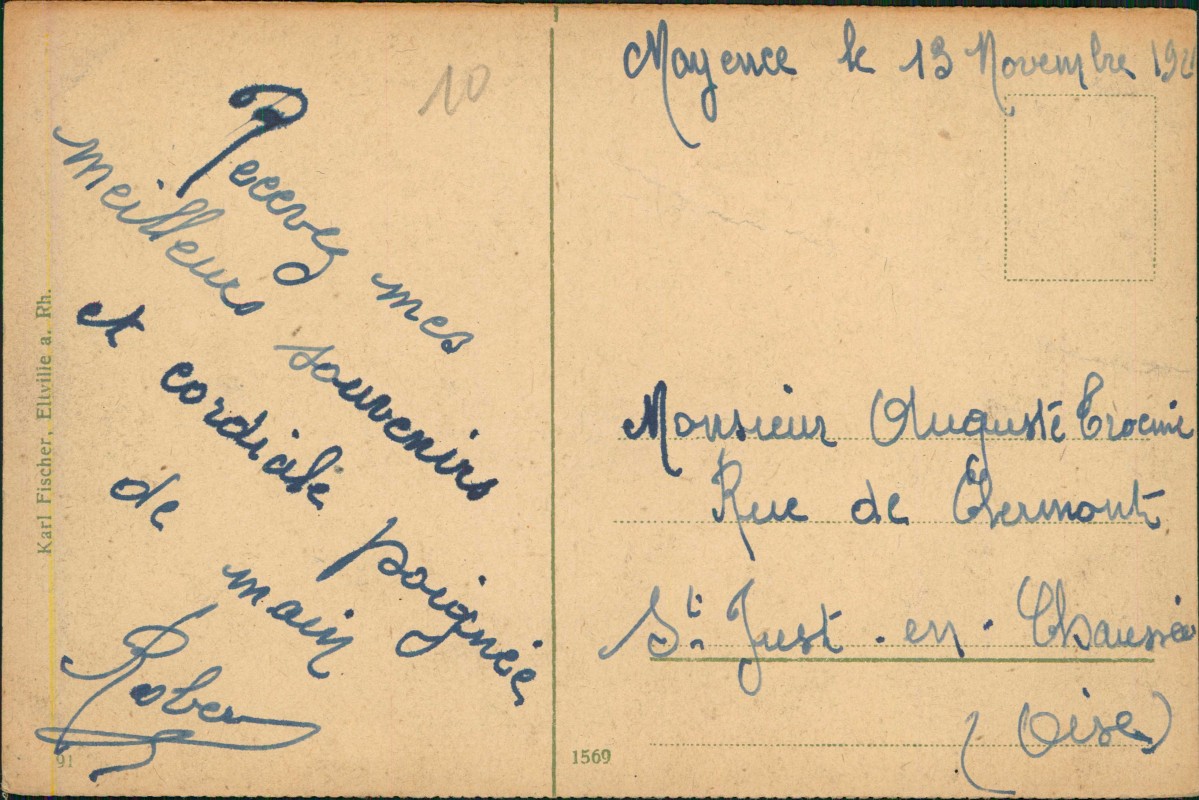 10
Recevez mes
meilleurs souvenirs
et cordiale poignée
de main
Robert
Karl Fischer, Eltville a. Rh.
91
1569
Mayence le 13 Novembre 192
Monsieur Auguste
Rue de Clermont
St. Just-en-Chaussée
(Oise)